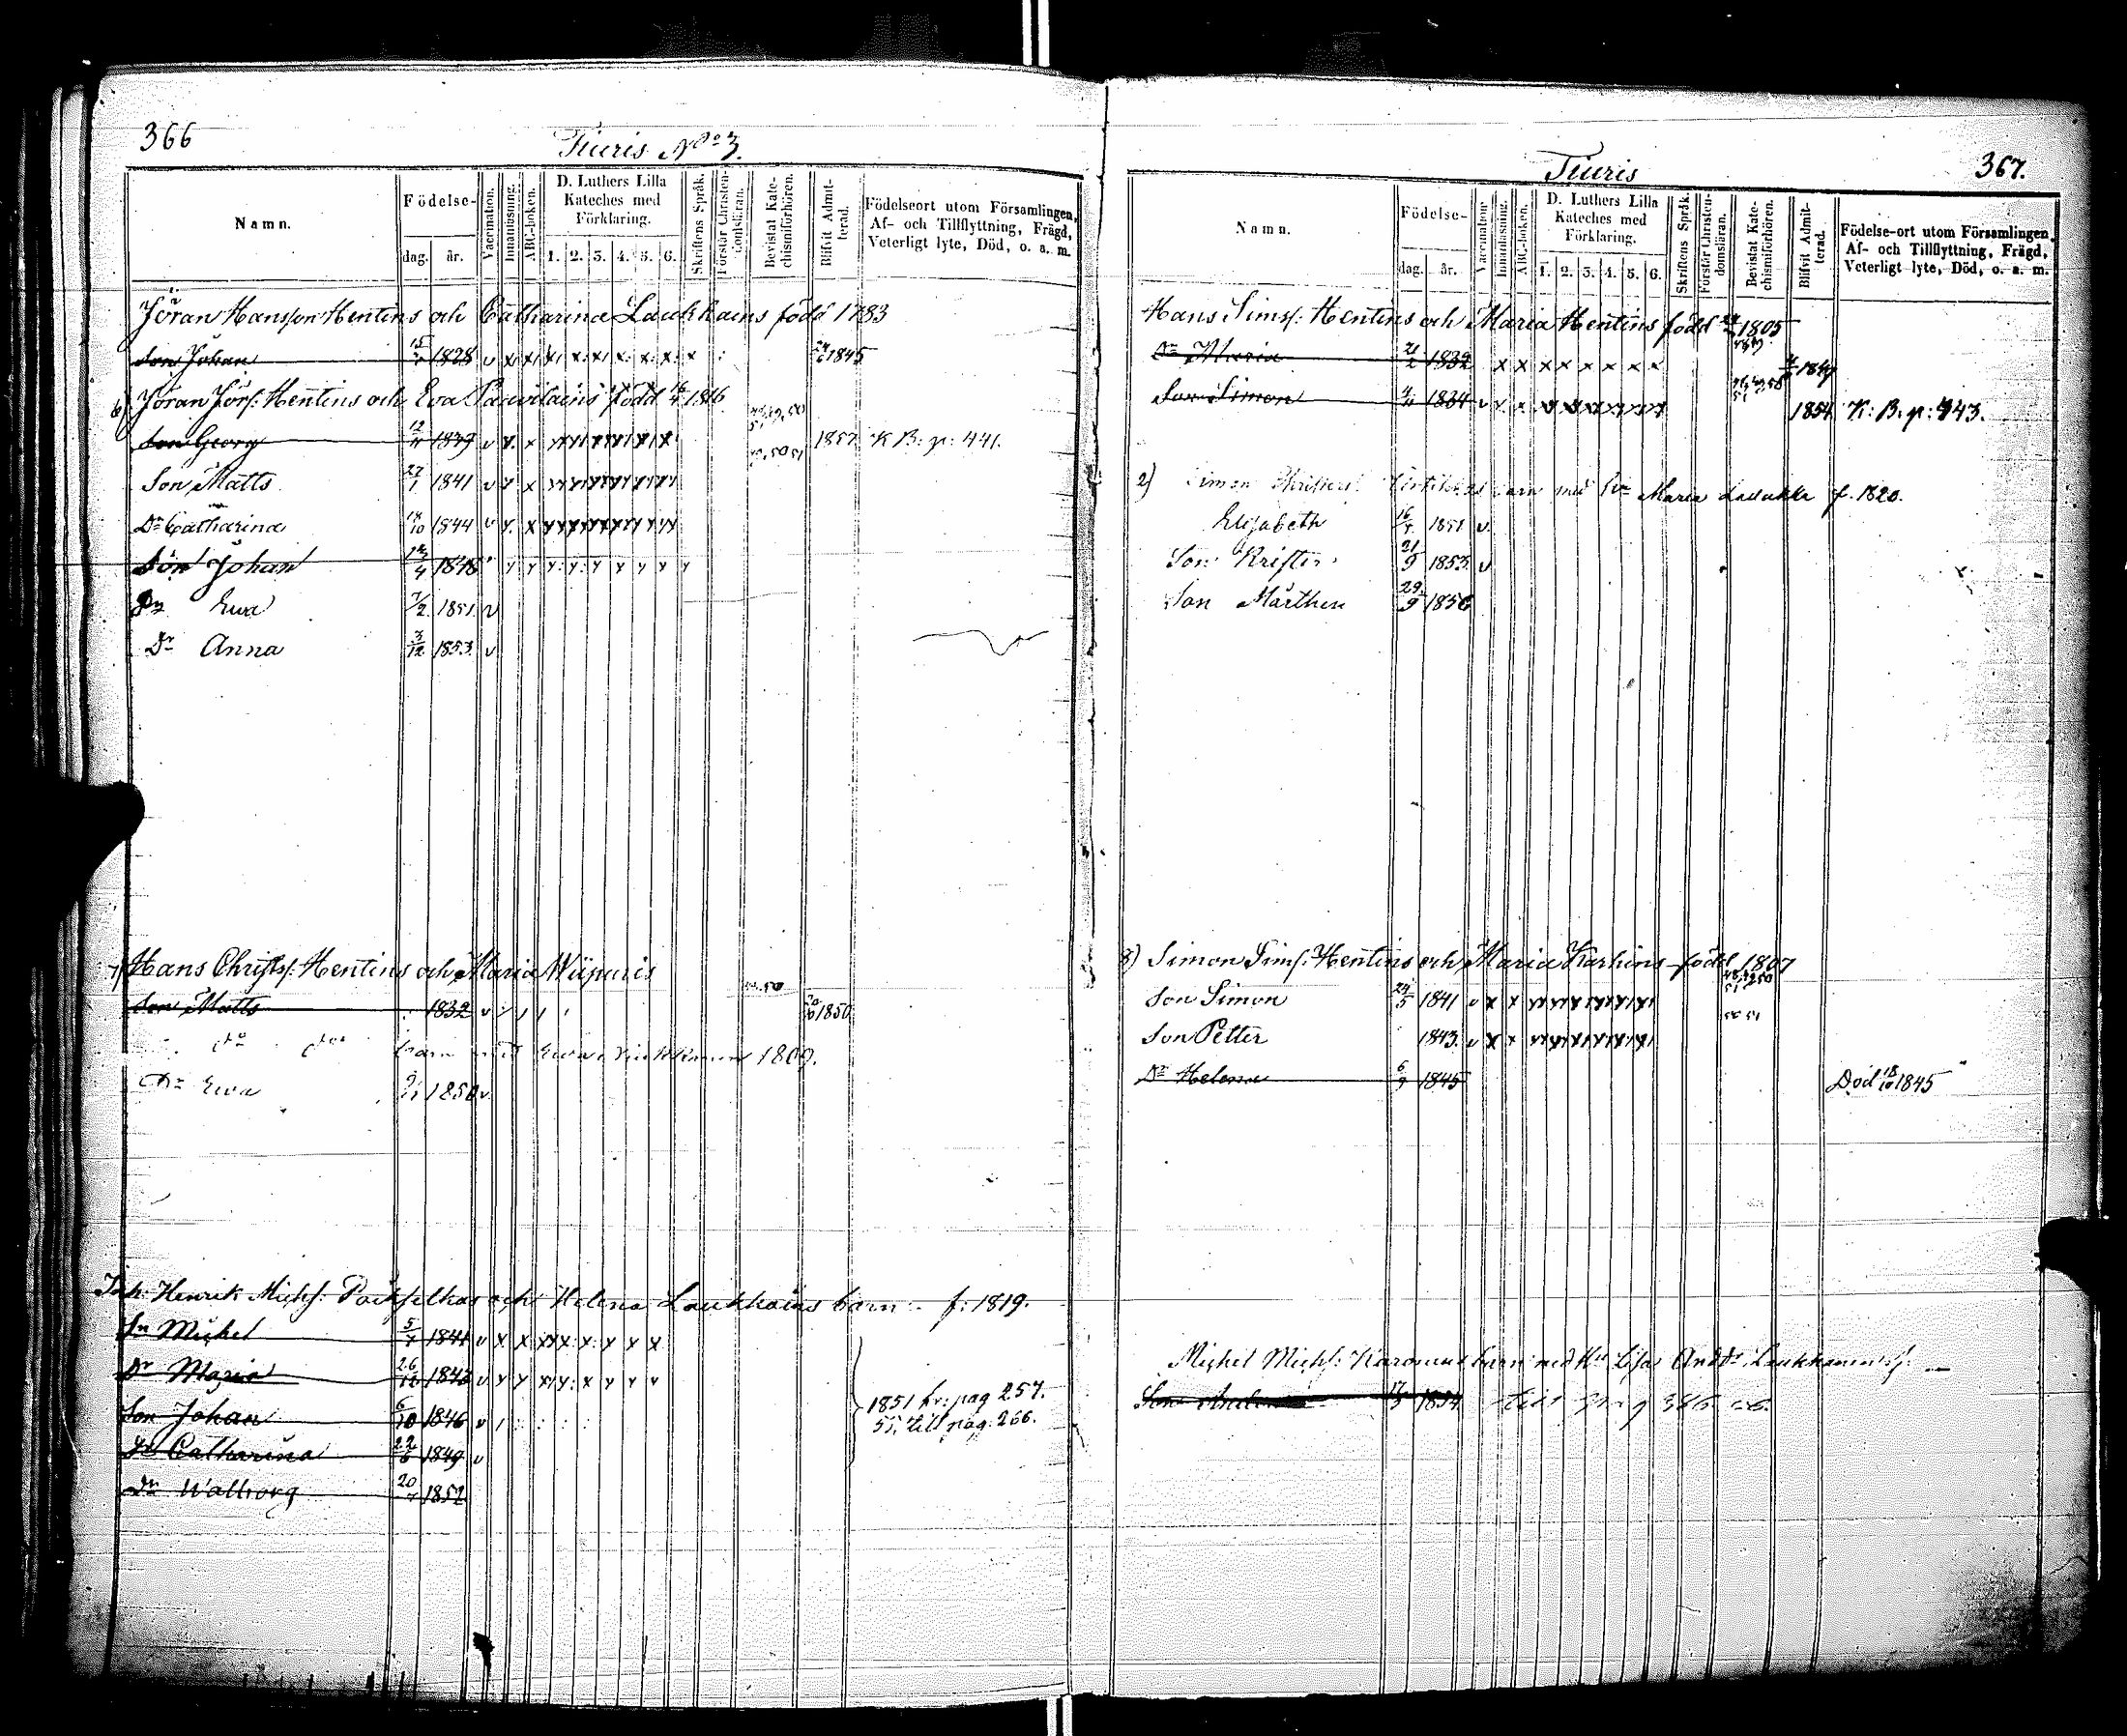 366
Tiuris No 3.
Namn.
Födelse-
dag. år.
Vaccination.
Innanläsning.
ABC-boken.
D. Luthers Lilla
Kateches med
Förklaring.
1. 2. 3. 4. 5. 6.
Skriftens Språk.
Förstår Christen-
domsläran.
Bevistat Kate-
chismiförhören.
Blifvit Admit-
terad.
Födelseort utom Församlingen,
Af- och Tillflyttning, Frägd,
Veterligt lyte, Död, o. a. m.
Jöran Hansson Hentins och Catharina Laukkains född 1783
Son Johan 1828 v x x 1845
6) Jöran Jörs: Hentins och Eva Pauvilains född 16/4 1816
Son Georg 12/11 1839 v x x 1857 K B: p: 441.
Son Matts 27/1 1841 v x x
Dr Catharina 18/10 1844 v x x
Son Johan 12/4 1848
Dr Ewa 7/2 1851 v
Dr Anna 3/12 1853 v
7) Hans Christs: Hentins och Maria Wiipuris
Son Matts 1832 v 1850
do do barn med Ewa 1809.
Dr Ewa 1850 v
Inh: Henrik Michs: Packselkas och Helena Laukkains barn f: 1819.
Sn Michel 1841 v x x
Dr Maria 26/12 1843 v
Son Johan 6/10 1846 v
Dr Catharina 22/6 1849 v
Dr Walborg 20/7 1852
1851 fr: pag 257.
55, till pag: 266.
Tiuris
367.
Namn.
Födelse-
dag. år.
Vaccination.
Innanläsning.
ABC-boken.
D. Luthers Lilla
Kateches med
Förklaring.
1. 2. 3. 4. 5. 6.
Skriftens Språk.
Förstår Christen-
domsläran.
Bevistat Kate-
chismiförhören.
Blifvit Admit-
terad.
Födelse-ort utom Församlingen,
Af- och Tillflyttning, Frägd,
Veterligt lyte, Död, o. a. m.
Hans Sims: Hentins och Maria Hentins född 1805
Dr Maria 21/2 1832 x x x x x x x x 1849
Son Simon 4/11 1834 1854 K: B: p: 443.
2) Simon barn med Maria Laukka f. 1820.
Elisabeth 1851 v.
Son Krister 21/9 1853 v
Son Mårthen 29/9 1856
8) Simon Sims: Hentins och Maria Karhins född 1807
Son Simon 24/5 1841 v x x
Son Petter 1843. v x x
Dr Helena 6/9 1845 Död 18/10 1845
Michel Michs: barn med Lisa Laukkanen
Son 1854